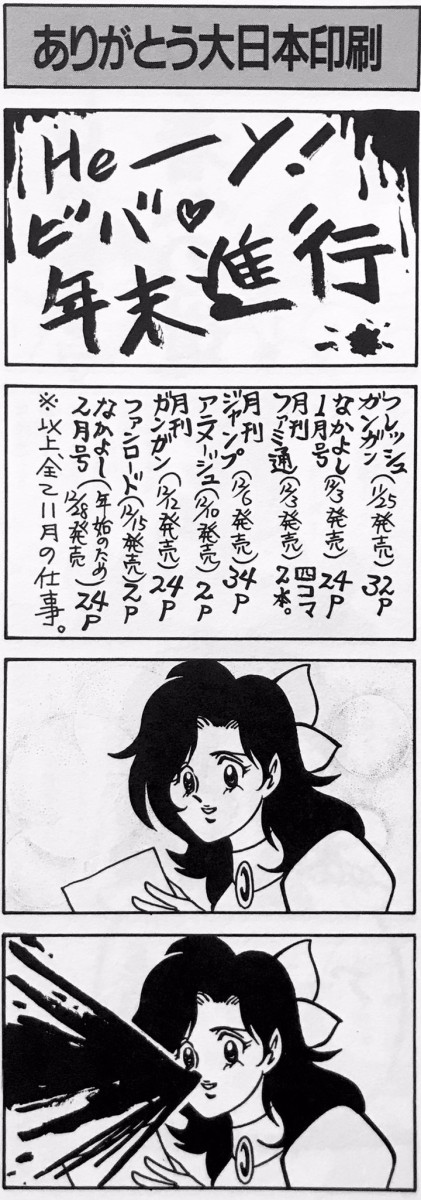 ありがとう大日本印刷
Heーソ!
ビバ♡
年末進行
フレッシュ
ガンガン(11/25発売)32P
なかよし
1月号(12/3発売)24P
月刊
ファミ通(12/3発売)四コマ2本。
月刊
ジャンプ(12/6発売)34P
アニメージュ(12/10発売)2P
月刊
ガンガン(12/12発売)24P
ファンロード(12/15発売)2P
なかよし(年始のため
2月号 12/28発売)24P
※以上、全て11月の仕事。